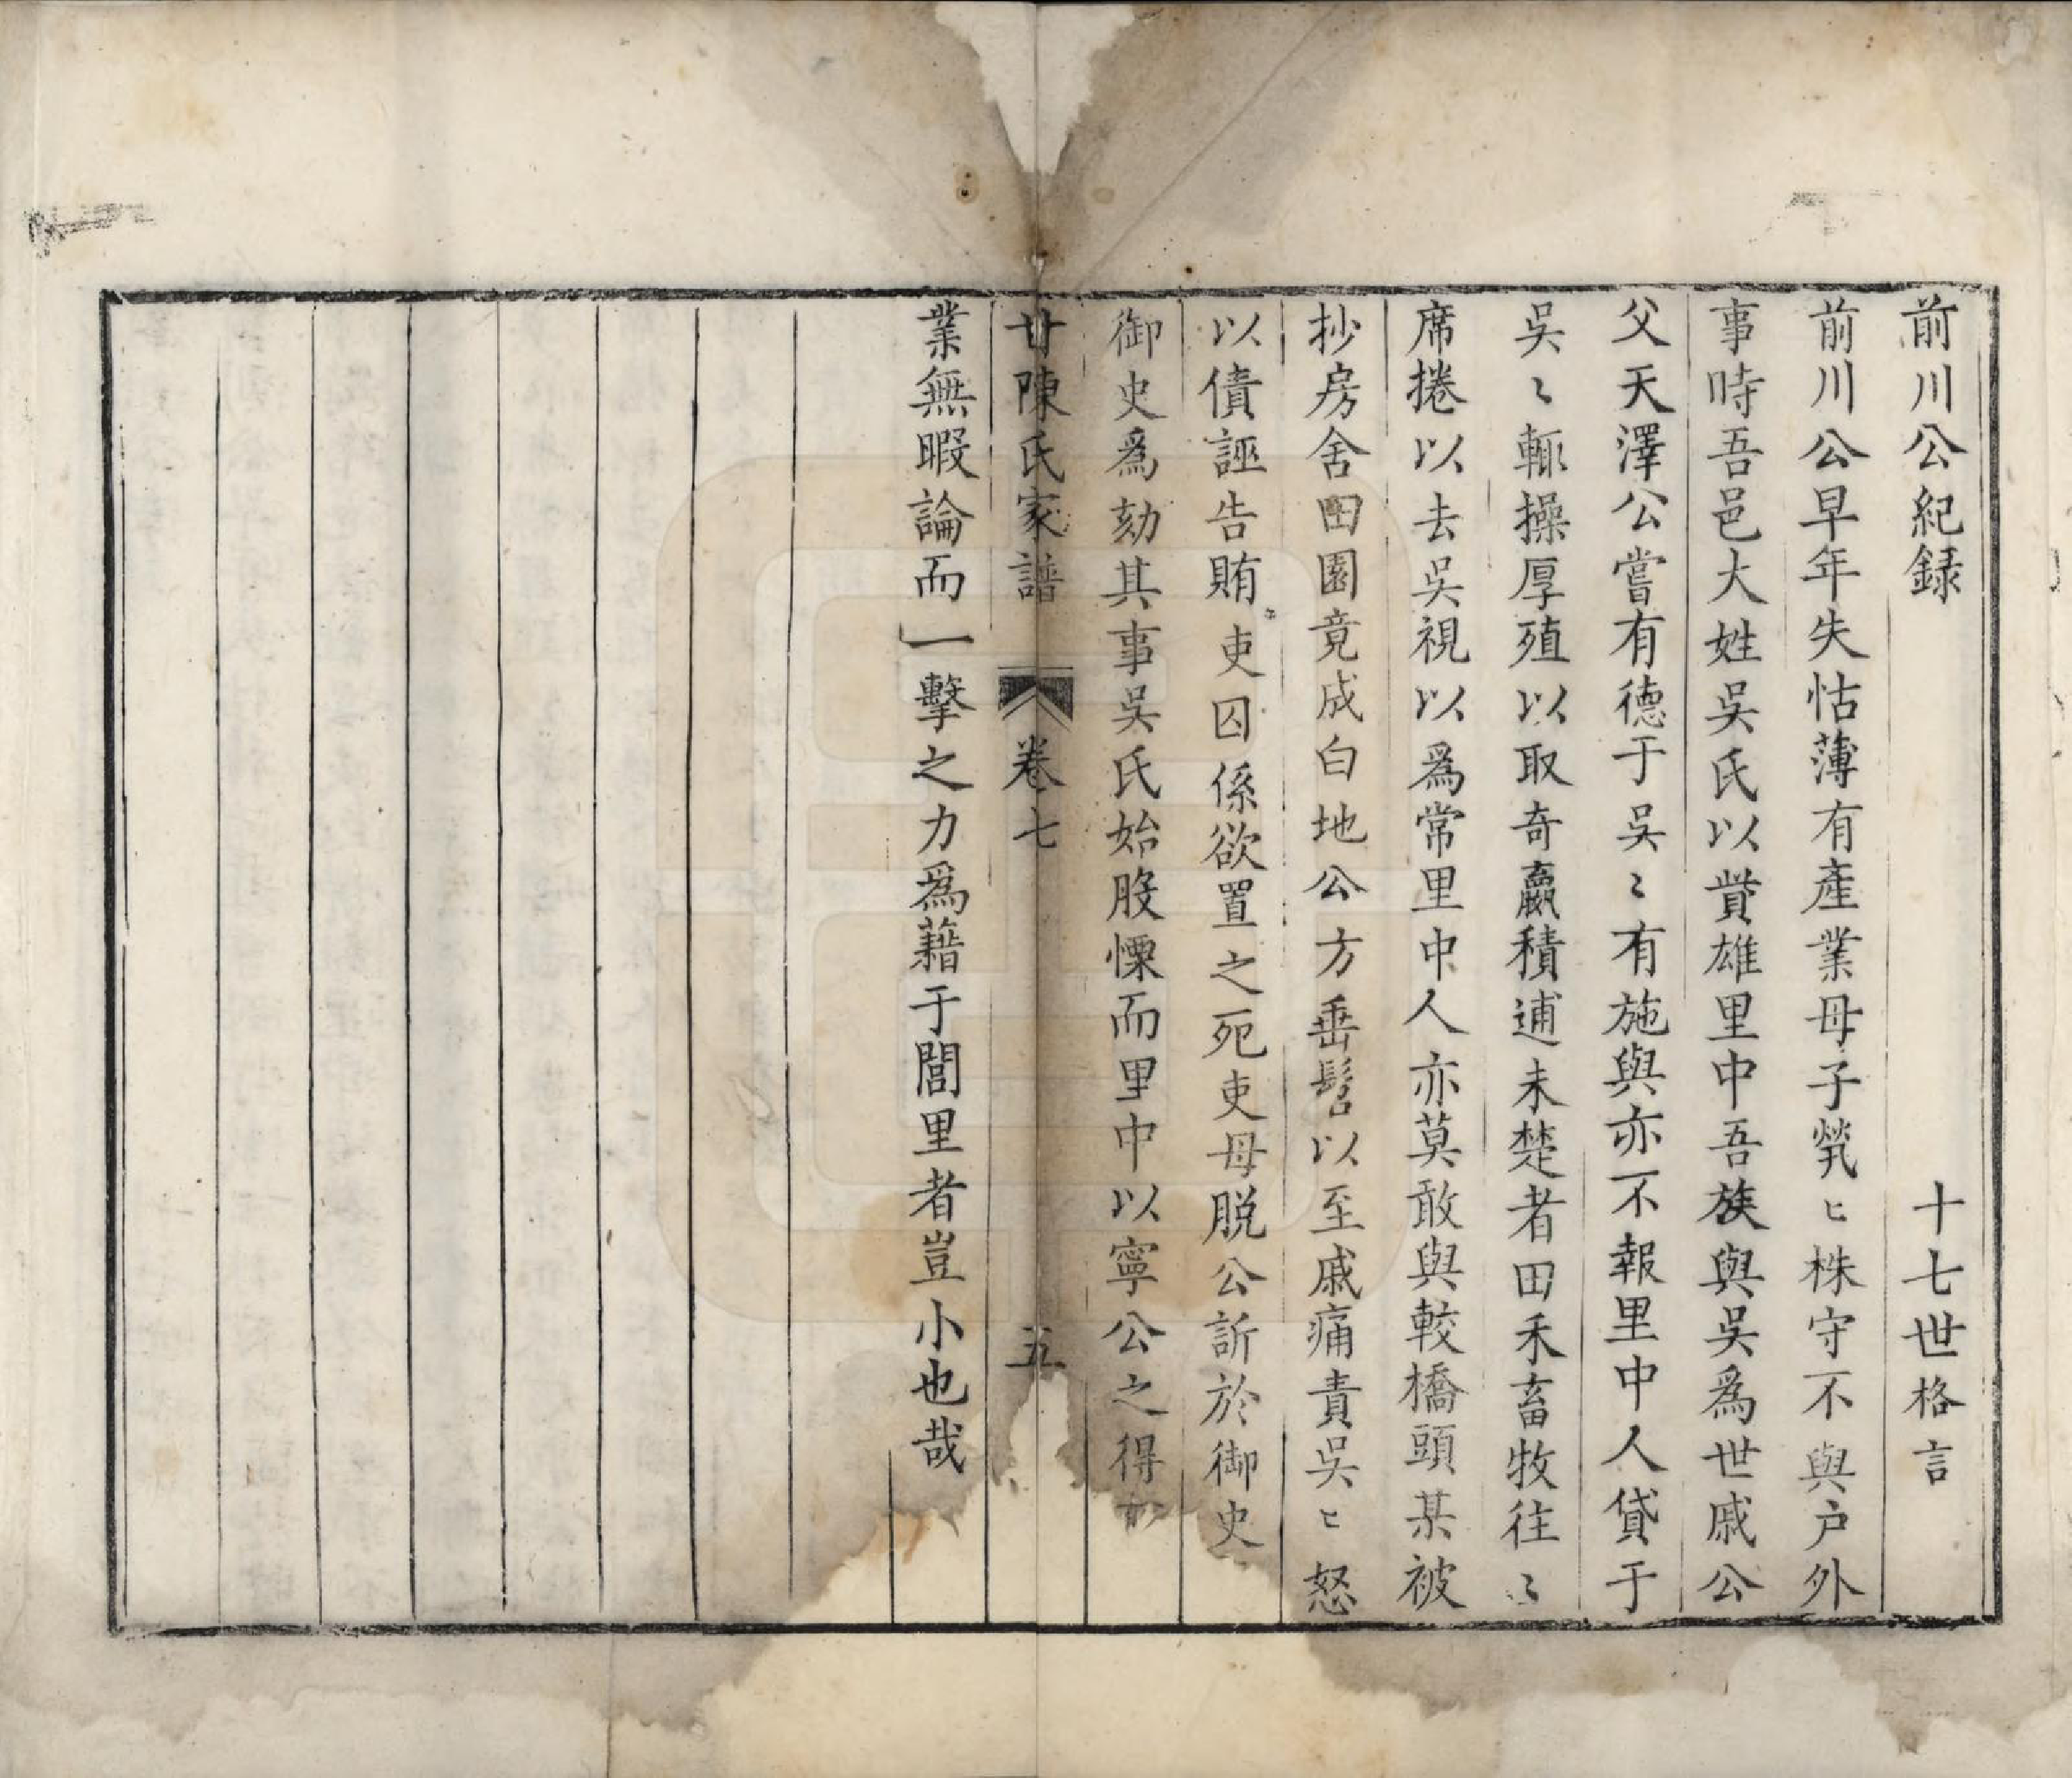 前川公紀録 十七世格言
前川公早年失怙薄有產業母子煢〻株守不與戶外
事時吾邑大姓吳氏以貲雄里中吾族與吳爲世戚公
父天澤公嘗有德于吳〻有施與亦不報里中人貸于
吳〻輒操厚殖以取奇贏積逋未楚者田禾畜牧往〻
席捲以去吳視以爲常里中人亦莫敢與較橋頭某被
抄房舍田園竟成白地公方垂髫以至戚痛責吳〻怒
以債誣告賄吏囚係欲置之死吏母脫公訴於御史
御史爲劾其事吳氏始股慄而里中以寧公之得
廿陳氏家譜 卷七 五
業無暇論而一擊之力爲藉于閭里者豈小也哉